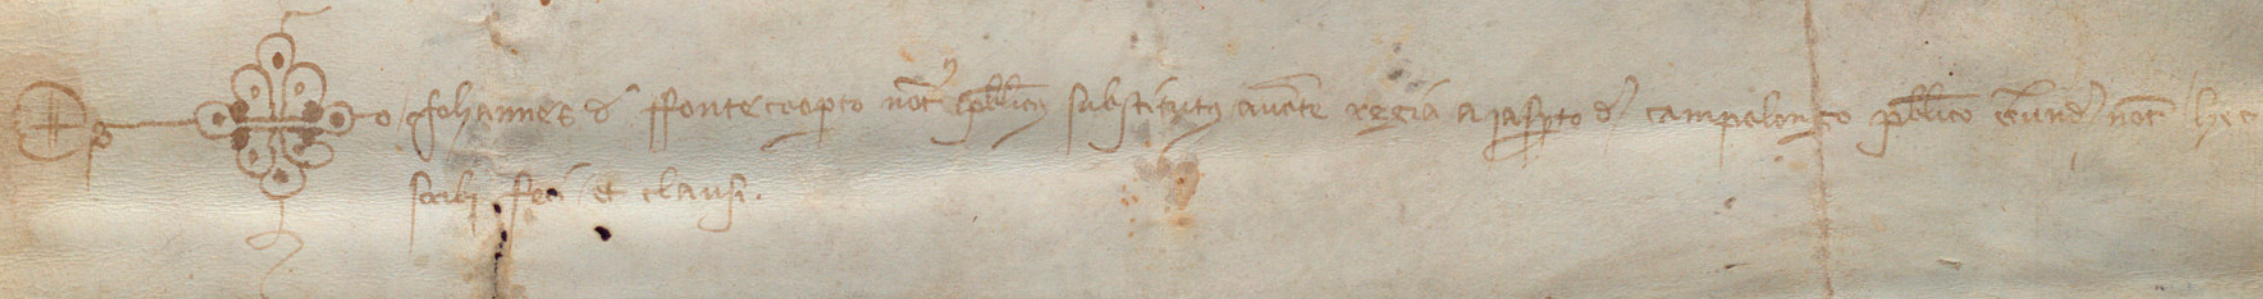 Ego Johannes de Ffontecooperto not' publicus substitutus auct'te regia a Jasperto de Campolongo publico eiusd' not' hec
scribi feci et clausi.